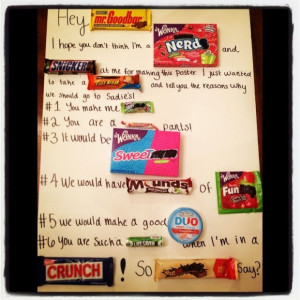 Hey mr.Goodbar
I hope you don't think I'm a WONKA NERD and
SNICKER at me for making this poster. I just wanted
to take a and tell you the reasons why
we should go to Sadie's!
#1 You make me
#2 You are a pants!
#3 It would be WONKA SWEET
#4 We would have Mounds of WONKA Fun
#5 we would make a good ICE BREAKERS DUO
#6 You are such a LIFE SAVERS when I'm in a
CRUNCH ! So Say?